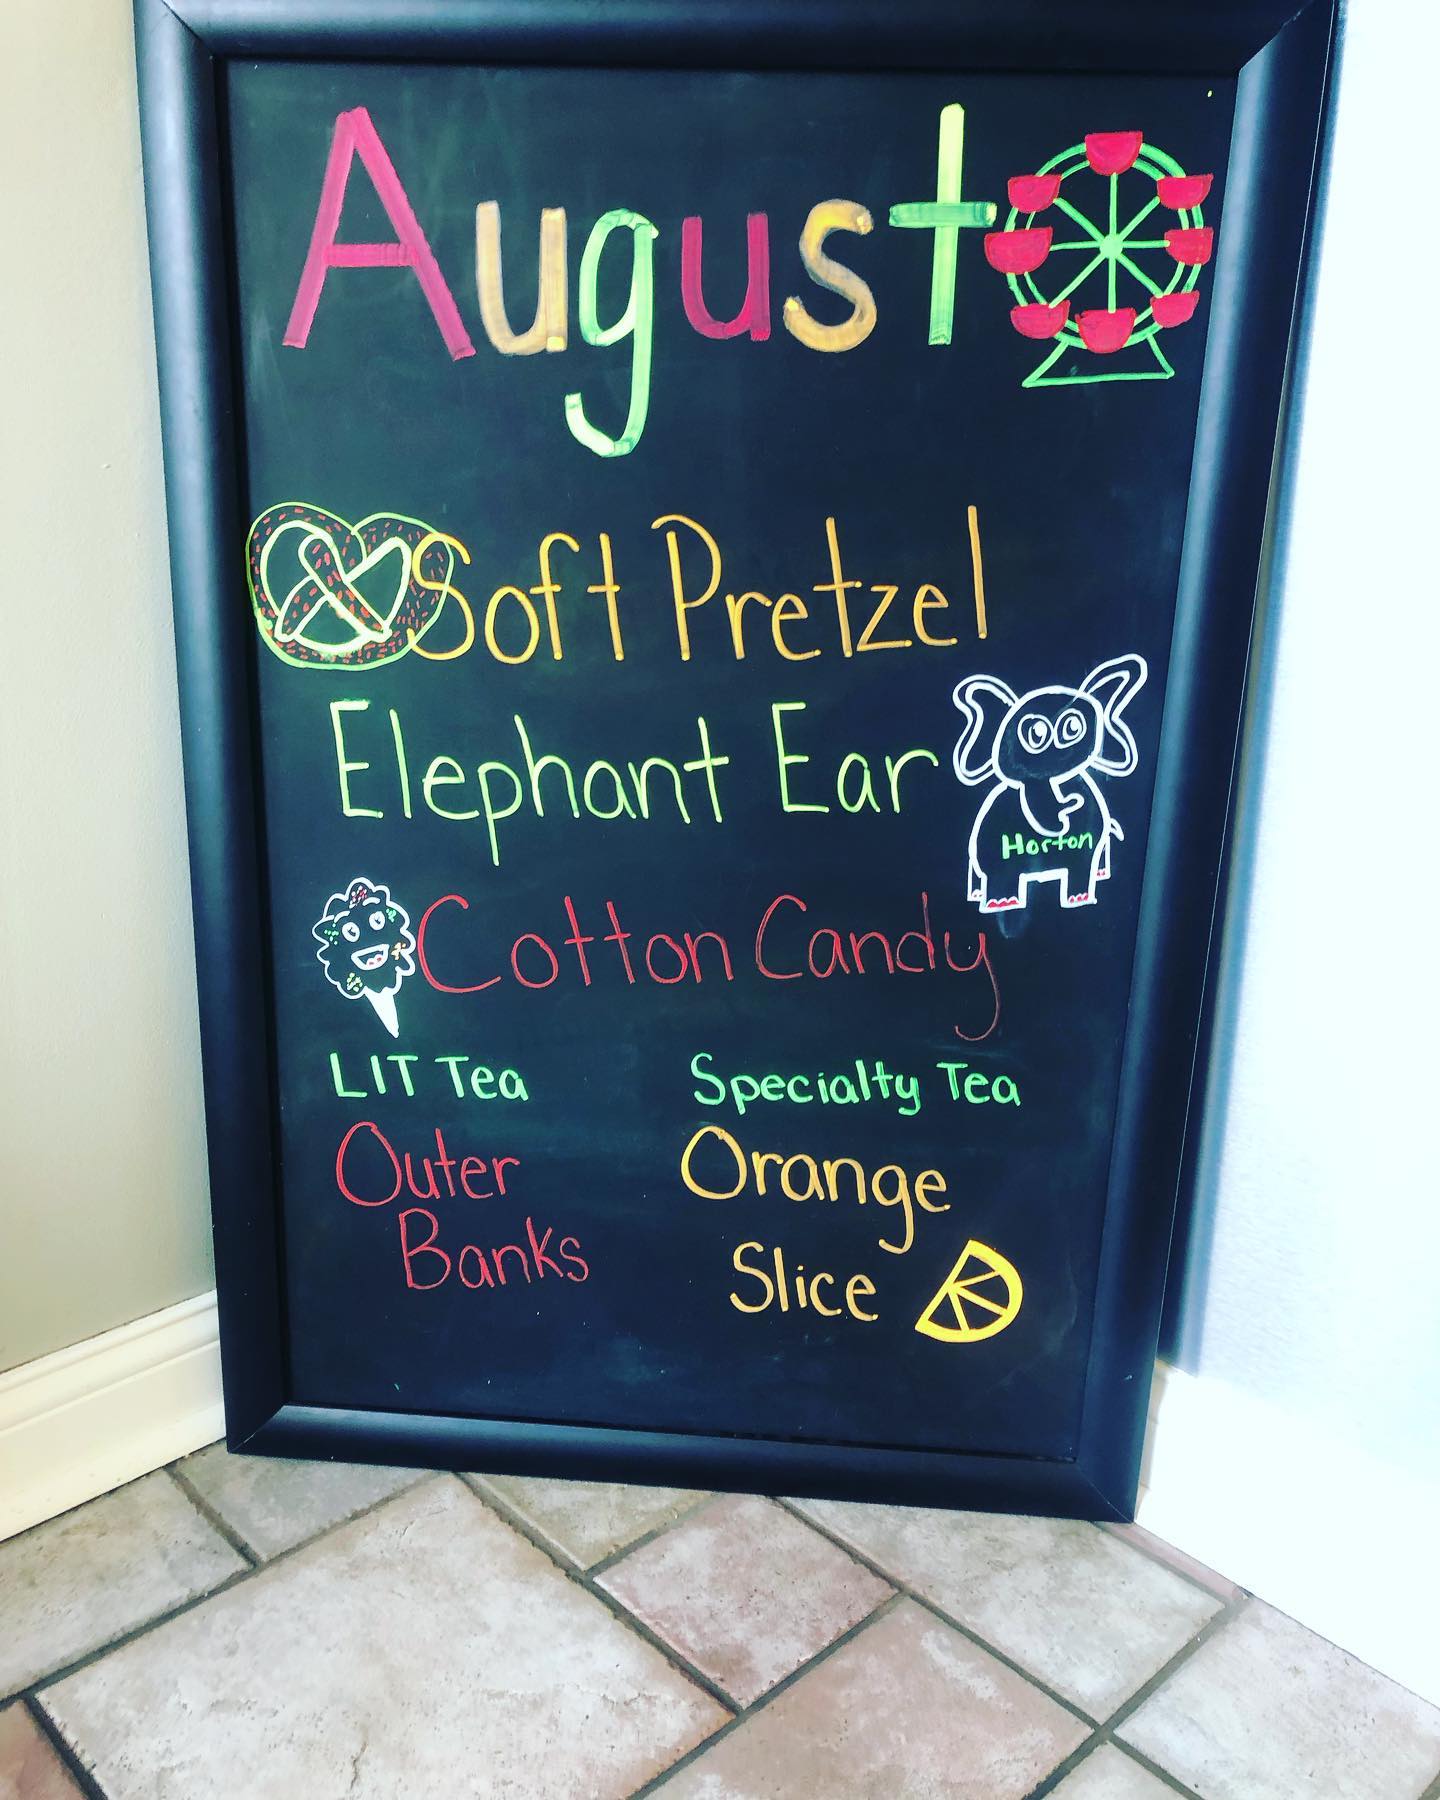 August
Soft Pretzel
Elephant Ear
Horton
Cotton Candy
LIT Tea
Outer
Banks
Specialty Tea
Orange
Slice